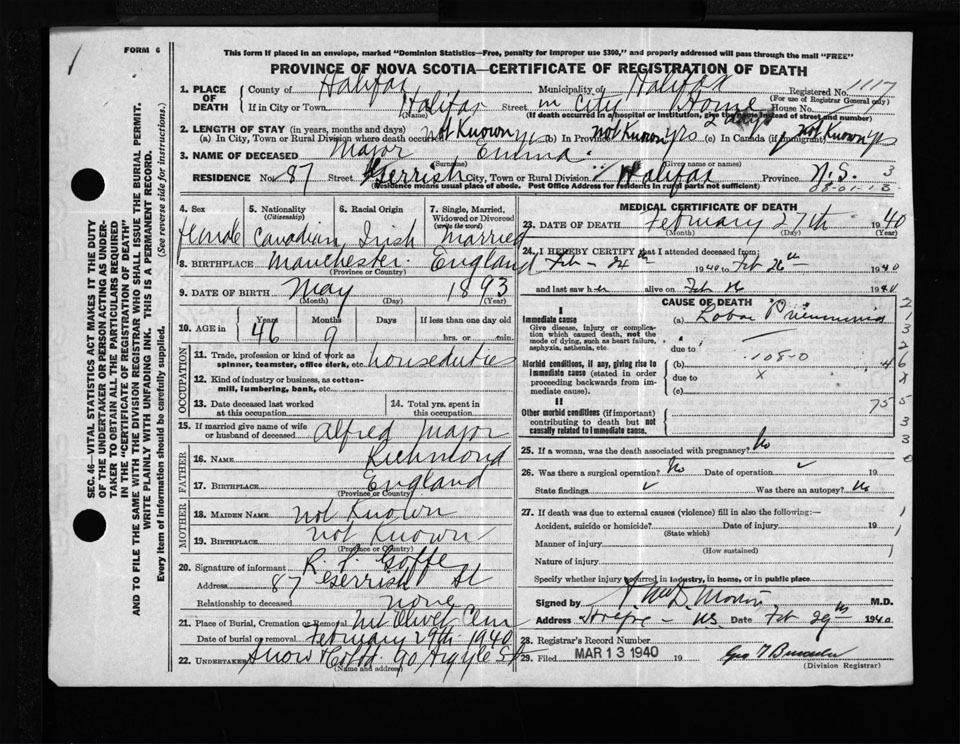 FORM 6
This form if placed in an envelope, marked "Dominion Statistics—Free, penalty for improper use $300," and properly addressed will pass through the mail "FREE"
PROVINCE OF NOVA SCOTIA—CERTIFICATE OF REGISTRATION OF DEATH
1. PLACE OF DEATH
County of Halifax Municipality of Halifax Registered No. 1117
(For use of Registrar General only)
If in City or Town Halifax Street in City Home House No.
(Name) (If death occurred in a hospital or institution, give the name instead of street and number)
2. LENGTH OF STAY (in years, months and days) 2 days
(a) In City, Town or Rural Division where death occurred Not Known yrs (b) In Province Not Known yrs (c) In Canada (if immigrant) Not Known yrs
3. NAME OF DECEASED Major Emma
(Surname) (Given name or names)
RESIDENCE No. 87 Street Gerrish City, Town or Rural Division Halifax Province N.S. 3
(Residence means usual place of abode. Post Office Address for residents in rural parts not sufficient)
08-01-13
4. Sex female
5. Nationality (Citizenship) Canadian
6. Racial Origin Irish
7. Single, Married, Widowed or Divorced (write the word) Married
8. BIRTHPLACE Manchester England
(Province or Country)
9. DATE OF BIRTH May 1893
(Month) (Day) (Year)
10. AGE in Years 46 Months 9 Days If less than one day old hrs. or min.
OCCUPATION
11. Trade, profession or kind of work as spinner, teamster, office clerk, etc. houseduties
12. Kind of industry or business, as cotton-mill, lumbering, bank, etc.
13. Date deceased last worked at this occupation
14. Total yrs. spent in this occupation
15. If married give name of wife or husband of deceased Alfred Major
FATHER
16. NAME Richmond
17. BIRTHPLACE England
(Province or Country)
MOTHER
18. MAIDEN NAME not Known
19. BIRTHPLACE not Known
(Province or Country)
20. Signature of informant R. P. Goffe
Address 87 Gerrish St
Relationship to deceased none
21. Place of Burial, Cremation or Removal Mt Olivet Cem
Date of burial or removal February 29th 1940
22. UNDERTAKER Snow & Co Ltd 90 Argyle St
(Name and address)
MEDICAL CERTIFICATE OF DEATH
23. DATE OF DEATH February 27th 1940
(Month) (Day) (Year)
24. I HEREBY CERTIFY that I attended deceased from:
Feb - 24th 1940 to Feb 26th 1940
and last saw her alive on Feb 26 1940
CAUSE OF DEATH
I
Immediate cause
Give disease, injury or complication which caused death, not the mode of dying, such as heart failure, asphyxia, asthenia, etc.
(a) Lobar Pneumonia
due to
Morbid conditions, if any, giving rise to immediate cause (stated in order proceeding backwards from immediate cause).
(b) 108-0
due to x
(c)
II
Other morbid conditions (if important) contributing to death but not causally related to immediate cause.
75
25. If a woman, was the death associated with pregnancy? No
26. Was there a surgical operation? No Date of operation 19
State findings Was there an autopsy? No
27. If death was due to external causes (violence) fill in also the following:—
Accident, suicide or homicide? Date of injury 19
(State which)
Manner of injury
(How sustained)
Nature of injury
Specify whether injury occurred in industry, in home, or in public place
Signed by M.D.
Address Halifax - N.S. Date Feb 29th 1940
28. Registrar's Record Number
29. Filed MAR 13 1940 19
(Division Registrar)
SEC. 46—VITAL STATISTICS ACT MAKES IT THE DUTY OF THE UNDERTAKER OR PERSON ACTING AS UNDERTAKER TO OBTAIN ALL THE PARTICULARS REQUIRED IN THE "CERTIFICATE OF REGISTRATION OF DEATH" AND TO FILE THE SAME WITH THE DIVISION REGISTRAR WHO SHALL ISSUE THE BURIAL PERMIT.
WRITE PLAINLY WITH UNFADING INK. THIS IS A PERMANENT RECORD.
Every item of information should be carefully supplied. (See reverse side for instructions.)